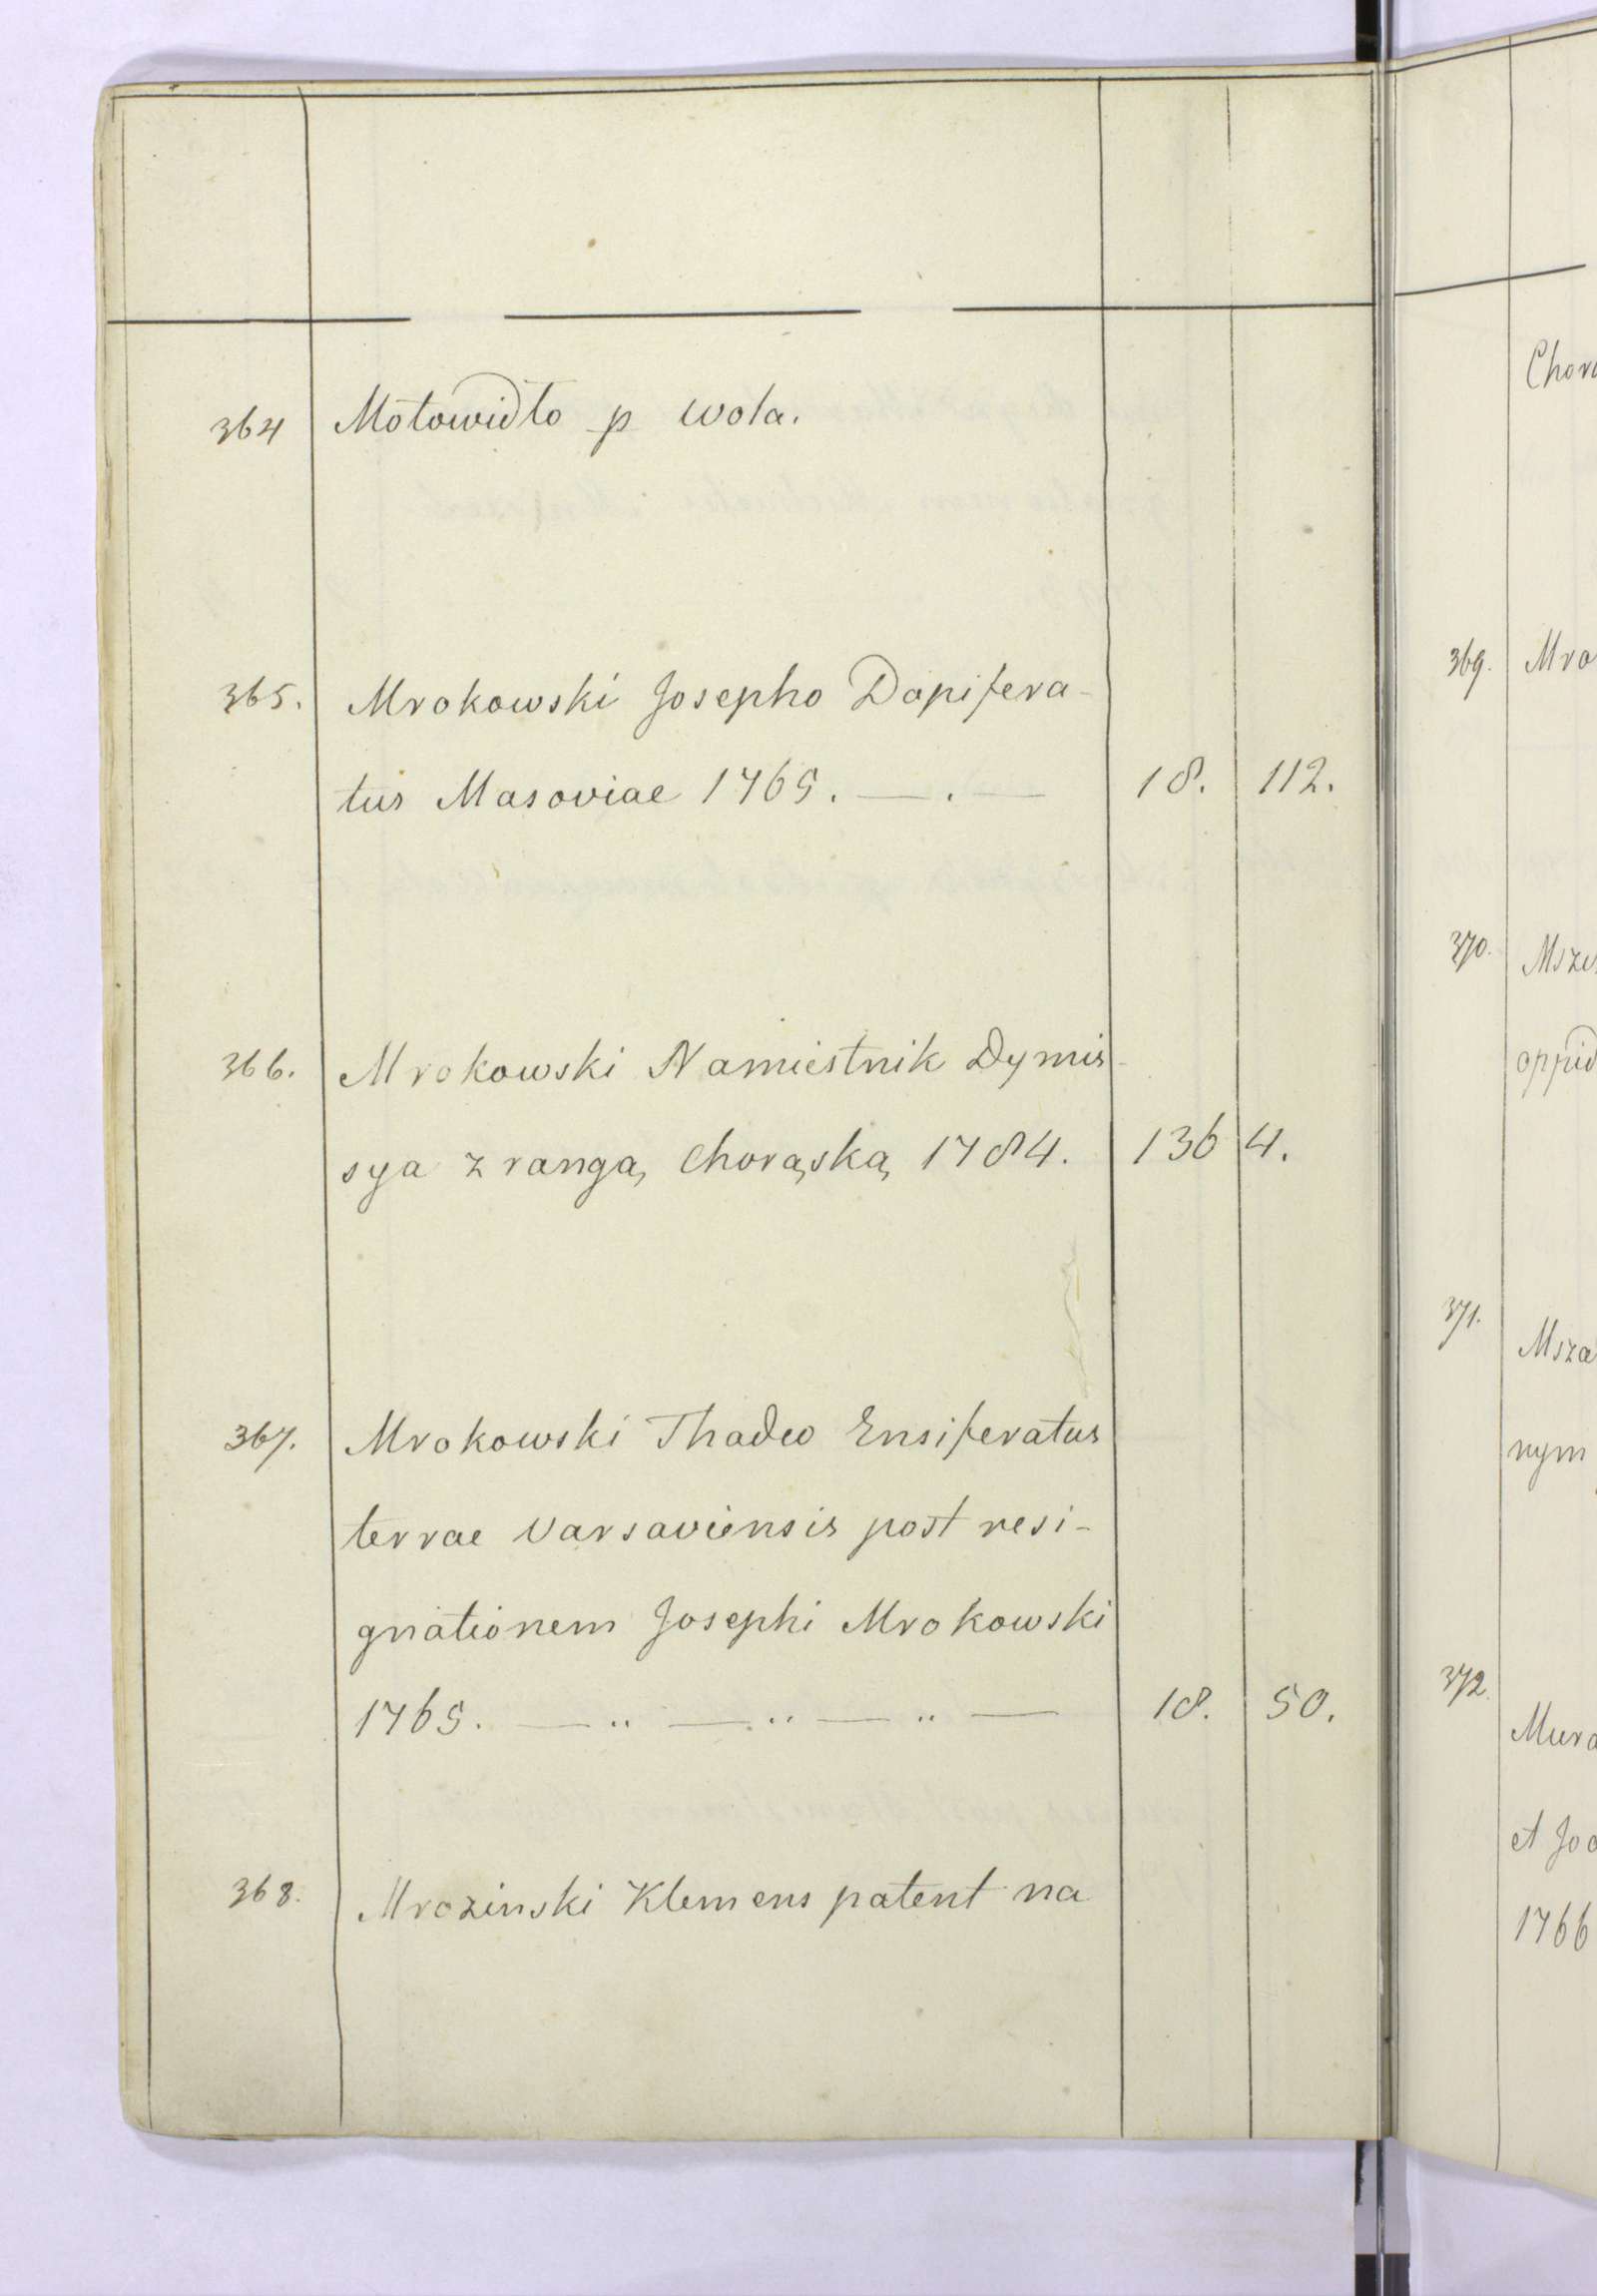 364 Motowidło p wola.
365. Mrokowski Josepho Dapifera-
tus Masoviae 1765. — . — 18. 112.
366. Mrokowski Namiestnik Dymis-
sya z rangą chorąską 1784. 136 4.
367. Mrokowski Thadeo Ensiferatus
terrae Varsaviensis post resi-
gnationem Josephi Mrokowski
1765. — " — " — " — 18. 50.
368. Mrozinski Klemens patent na
Chorą
369. Mro
370. Msze
oppid
371. Msza
nym
372. Mura
et Joa
1766